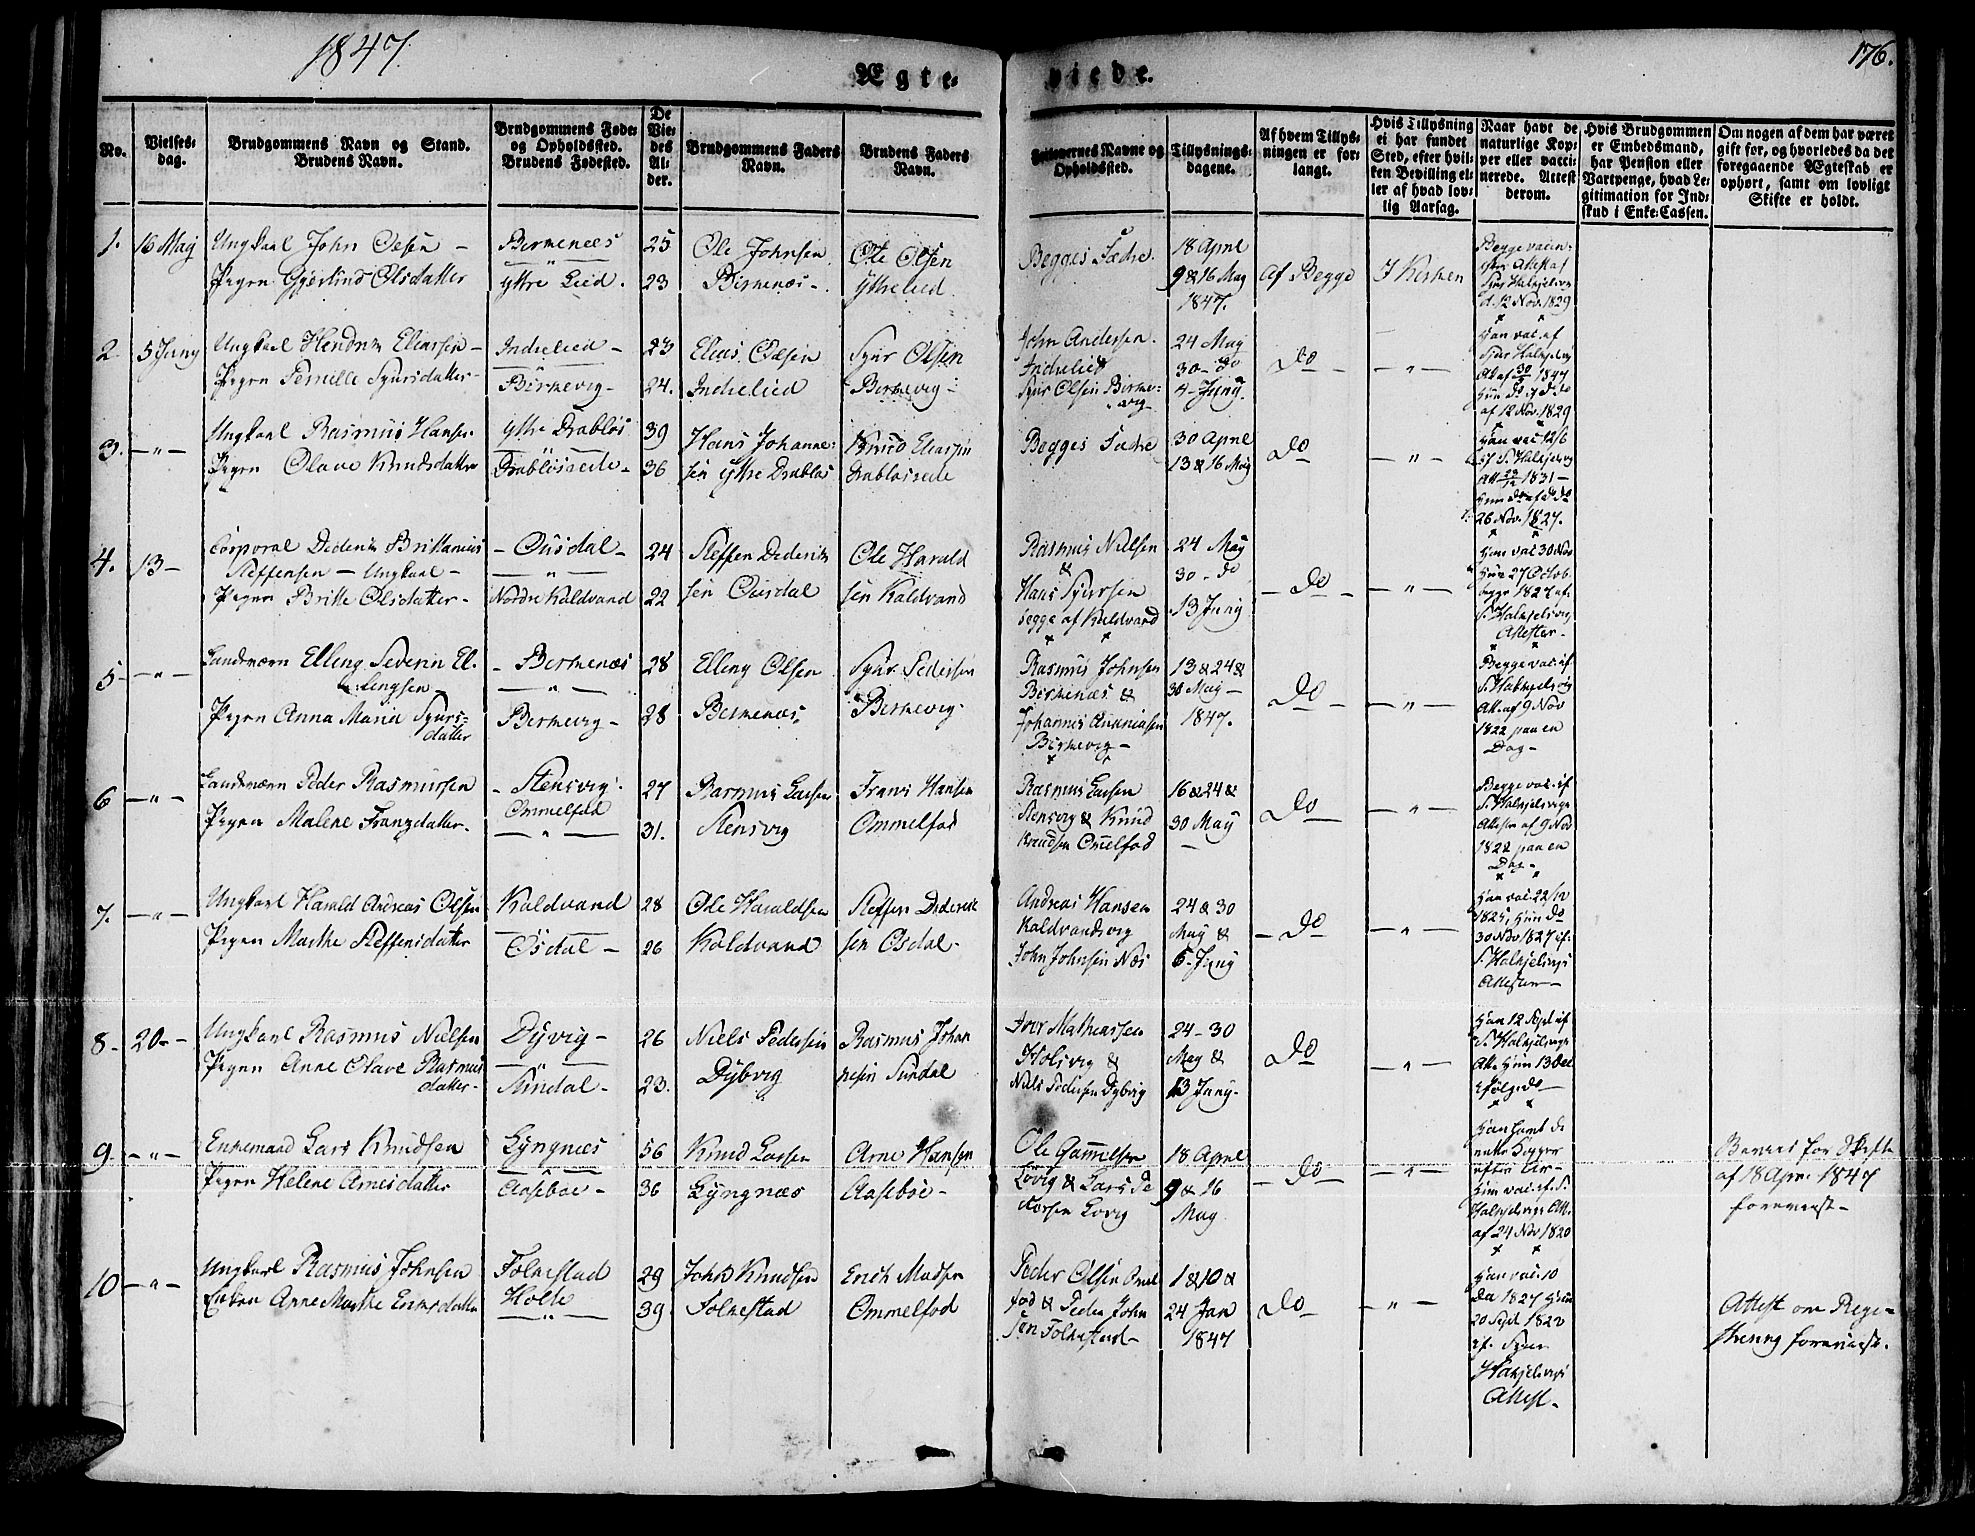 1847.
176.
Ægte-
viede.
No.
Vielses-
dag.
Brudgommens Navn og Stand.
Brudens Navn.
Brudgommens Føde-
og Opholdssted.
Brudens Fødested.
De
Vie-
des
Al-
der.
Brudgommens Faders
Navn.
Brudens Faders
Navn.
Forlovernes Navne og
Opholdssted.
Tillysnings-
dagene.
Af hvem Tillys-
ningen er for-
langt.
Hvis Tillysning
ei har fundet
Sted, efter hvil-
ken Bevilling el-
ler af hvad lov-
lig Aarsag.
Naar havt de
naturlige Kop-
per eller vacci-
nerede. Attest
derom.
Hvis Brudgommen
er Embedsmand,
har Pension eller
Vartpenge, hvad Le-
gitimation for Ind-
skud i Enke-Cassen.
Om nogen af dem har været
gift før, og hvorledes da det
foregaaende Ægteskab er
ophørt, samt om lovligt
Skifte er holdt.
1.
16 May
Ungkarl John Olsen -
Pigen Gjertrud Olsdatter
Birkenæs
Ytre Leed.
25
23
Ole Johnsen
Birkenæs-
Ole Olsen
Ytreleed
Begges Fædre.
18 April
9 & 16 May
1847.
Af Begge
I Kirken
Begge vaccin:
efter Attest af
Syur Halkjelsvig
d. 12 Nov. 1829
2
5 Juny
Ungkarl Hendrik Eliassen-
Pigen Pernille Syursdatter-
Indreleed-
Birkevig-
23
24.
Elias Olsen
Indreleed
Syur Olsen
Birkevig-
John Andersen.
Indreleed
Syur Olsen Birke-
vig
24 May
30- do
4- Juny.
do
- " -
Han vac. af
Syur Halkjelsvig
Att af 30 1847
Hun do af do do
af 12 Nov. 1829
3.
- " -
Ungkarl Rasmus Hansen
Pigen Olave Knudsdatter
Ytre Drabløs
Drabløsrede-
39
36
Hans Johanne-
sen Ytre Drabløs
Knud Eliassen
Drabløsrede
Begges Fædre
30 April
13 & 16 May
do
- " -
Han vac 12/6
S. Halkjelsvig
Att 1831-
Hun do af do do
26 Nov. 1827.
4.
13-
Corporal Diderik Brittanius
Steffensen - Ungkarl-
Pigen Britte Olsdatter-
- Ousdal-
Nordre Kaldvand
24
22
Steffen Diderik
sen Ousdal
Ole Harald
sen Kaldvand
Rasmus Nielsen
&
Hans Syursen
begge af Kaldvand
24 May
30- do
13 Juny
- do -
- " -
Han vac 30 Nov
Hun 27 Octob.
begge 1827 ef.
S. Halkjelsvigs
Attester-
5
- " -
Landværn Elling Severin El-
lingsen-
Pigen Anna Maria Syurs-
datter
- Birkenæs
Birkevig-
28
28
Elling Olsen
Birkenæs
Syur Pedersen
Birkevig-
Rasmus Johnsen
Birkenæs &
Johannes Ananiasen
Birkevig-
13 & 24 &
30 May-
1847.
do
- " -
Begge vac. af
S. Halkjelsvig
Att. af 9 Nov
1822 paa en
Dag-
6
- " -
Landværn Peder Rasmussen
Pigen Malene Franzdatter.
- Stensvig.
Ommelfod
27
31.
Rasmus Larsen
Stensvig
Frans Hansen
Ommelfod
Rasmus Larsen
Stensvig & Knud
Knudsen Omelfod
16 & 24 &
30 May
do
- " -
Begge vac. ef
S. Halkjelsvigs
Attester af 9 Nov
1822 paa en
Dag-
7.
- " -
Ungkarl Harald Andreas Olsen
Pigen Marthe Steffensdatter
Kaldvand
Osdal-
28
26
Ole Haraldsen
Kaldvand
Steffen Diderik
sen Osdal-
Andreas Hansen
Kaldvandsvig
John Johnsen Næs
24 & 30
May &
6- Juny
- do
- " -
Han vac. 22/10
1825, Hun do
30 Nov 1827 ef.
S. Halkjelsvigs
Attester-
8-
20--
Ungkarl Rasmus Nielsen
Pigen Anne Olave Rasmus
datter-
Dyvig-
Sundal-
26
23.
Niels Pedersen
Dybvig
Rasmus Johan
nesen Sundal
Iver Mathiassen
Holsvig &
Niels Pedersen Dybvig
24-30
May &
13 Juny-
do
- " -
Han 12 Sept ef
S. Halkjelsvigs
Att. Hun 13 Dec
ifølge do
9-
- " -
Enkemand Lars Knudsen
Pigen Helene Arnesdatter
Lyngnæs
Aasebøe-
56
36
Knud Larsen
Lyngnæs
Arne Hansen
Aasebøe-
Ole Gammelsen
Løvig & Lars Pe
dersen Løvig
18 April
9 & 16
May
- do -
- " -
Han havt de
natl: Kopper
efter Ar-
Hun vac. ef. S.
Halkjelsvigs Att.
af 24 Nov 1820
Beviis for Skifte
af 18 Apr. 1847
foreviist-
10
- " -
Ungkarl Rasmus Johnsen
Enken Anne Marthe Eriksdatter
Folkestad
Holte
29
39
John Knudsen
Folkestad
Erich Madsen
Ommelfod
Peder Olsen Omel
fod & Peder John
sen Folkestad-
1 & 10 &
24 Jan
1847
do
- " -
Han vac. 10
Dec 1827 Hun
20 Sept 1822
ef. Syur
Halkjelsvigs
Attest-
Attest om Regi-
strering foreviist.